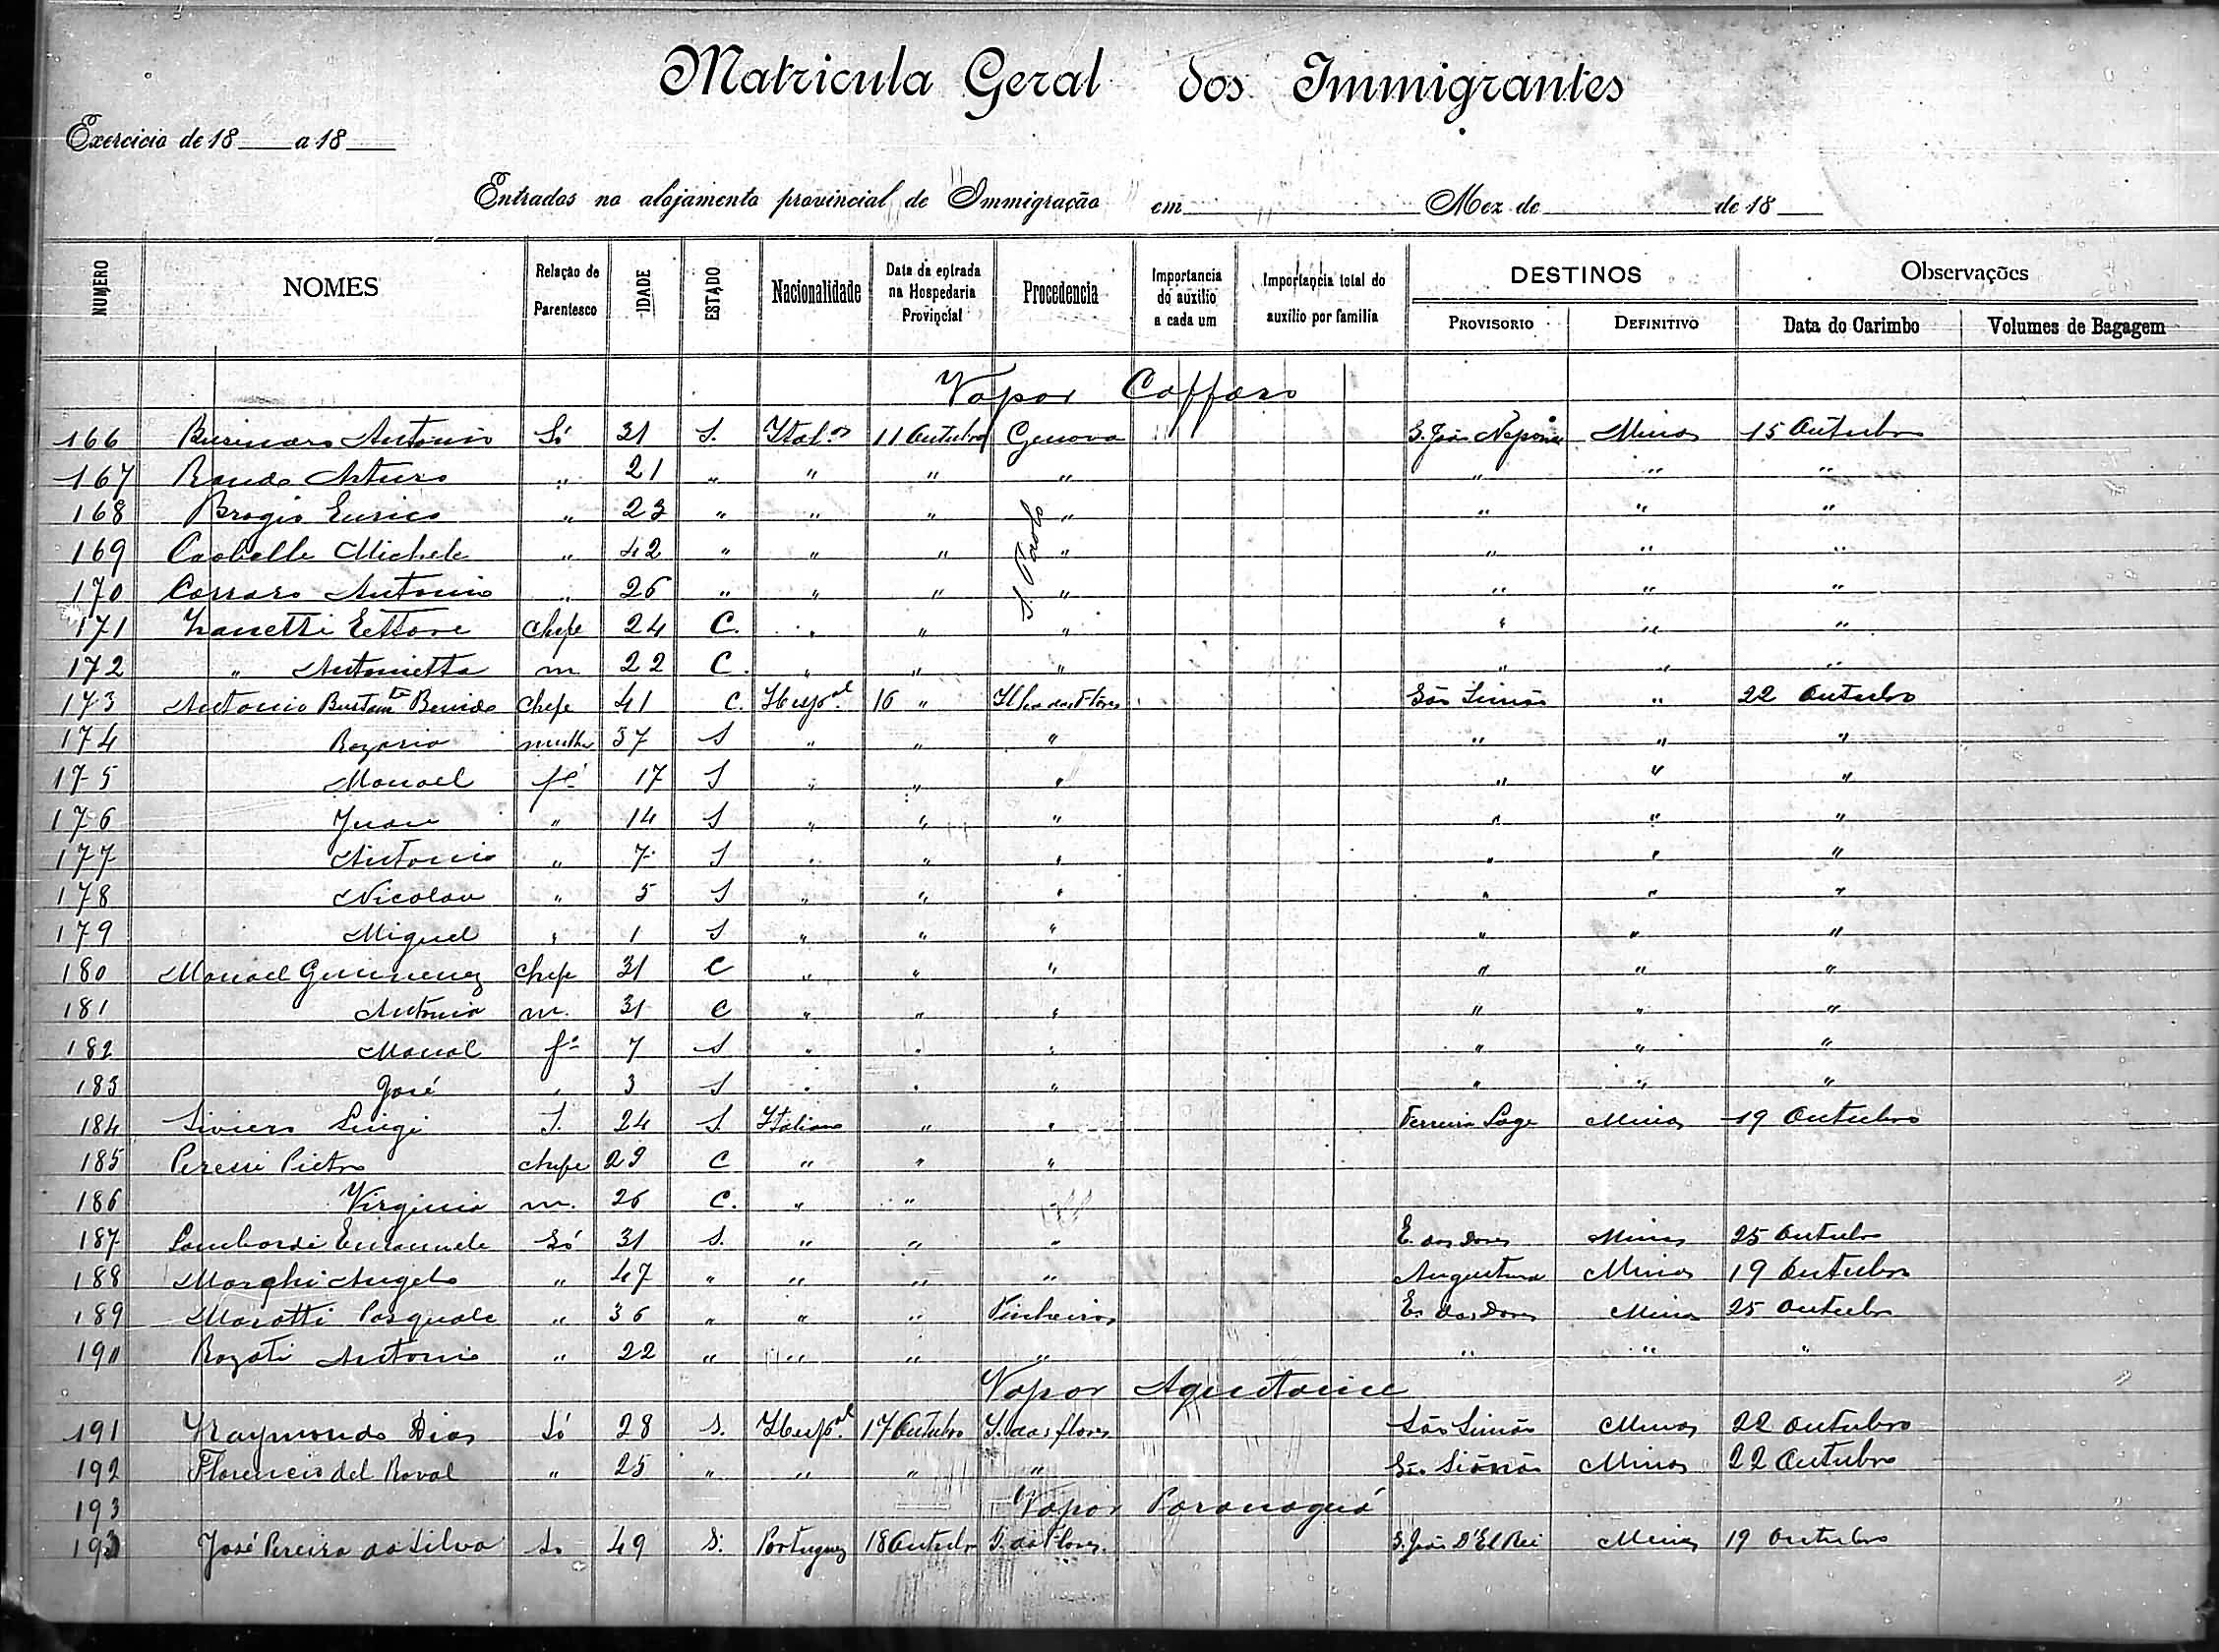 Matricula Geral dos Immigrantes
Exercicio de 18 a 18
Entrados no alojamento provincial de Immigração em Mez de de 18
NUMERO NOMES Relação de Parentesco IDADE ESTADO Nacionalidade Data da entrada na Hospedaria Provincial Procedencia Importancia do auxilio a cada um Importancia total do auxilio por familia DESTINOS Observações
PROVISORIO DEFINITIVO Data do Carimbo Volumes de Bagagem
Vapor Caffaro
166 Antonio Só 31 S. Ital.os 11 Outubro Genova S. João Minas 15 Outubro
167 Arturo " 21 " " " " " " "
168 Brogio Eurico " 23 " " " " " " "
169 Michele " 42 " " " " " " "
S. Paolo
170 Corraro Antonio " 26 " " " " " " "
171 Zanetti Ettore Chefe 24 C. " " " " " "
172 " Antonietta m 22 C. " " " " " "
173 Antonio Chefe 41 C. Hesp.al 16 " Ilha das Flores São Simão " 22 Outubro
174 Rozaria mulher 37 S " " " " " "
175 Manoel fo 17 S " " " " " "
176 Juan " 14 S " " " " " "
177 Antonio " 7 S " " " " " "
178 Nicolau " 5 S " " " " " "
179 Miguel " 1 S " " " " " "
180 Manoel Guimenez Chefe 31 C " " " " " "
181 Antonia m. 31 C " " " " " "
182 Manoel fo 7 S " " " " " "
183 José " 3 S " " " " " "
184 Luigi S. 24 S. Italiano " " Ferreira Lage Minas 19 Outubro
185 Pietro chefe 29 C " " "
186 Virginia m. 26 C. " "
187 Lombardi Emanuele Só 31 S. " " " E. das Dores Minas 25 Outubro
188 Marghi Angelo " 47 " " " " Angustura Minas 19 Outubro
189 Marotti Pasquale " 36 " " " Pinheiros E. das Dores Minas 25 Outubro
190 Rozati Antonio " 22 " " " " " " "
Vapor Aquitaine
191 Raymondo Dias Só 28 S. Hesp.al 17 Outubro I. das flores São Simão Minas 22 Outubro
192 Florencio del Roval " 25 " " " " São Simão Minas 22 Outubro
193 Vapor Paranaguá
193 José Pereira da Silva So 49 S. Portuguez 18 Outubro I. das Flores. S. João D'El Rei Minas 19 Outubro